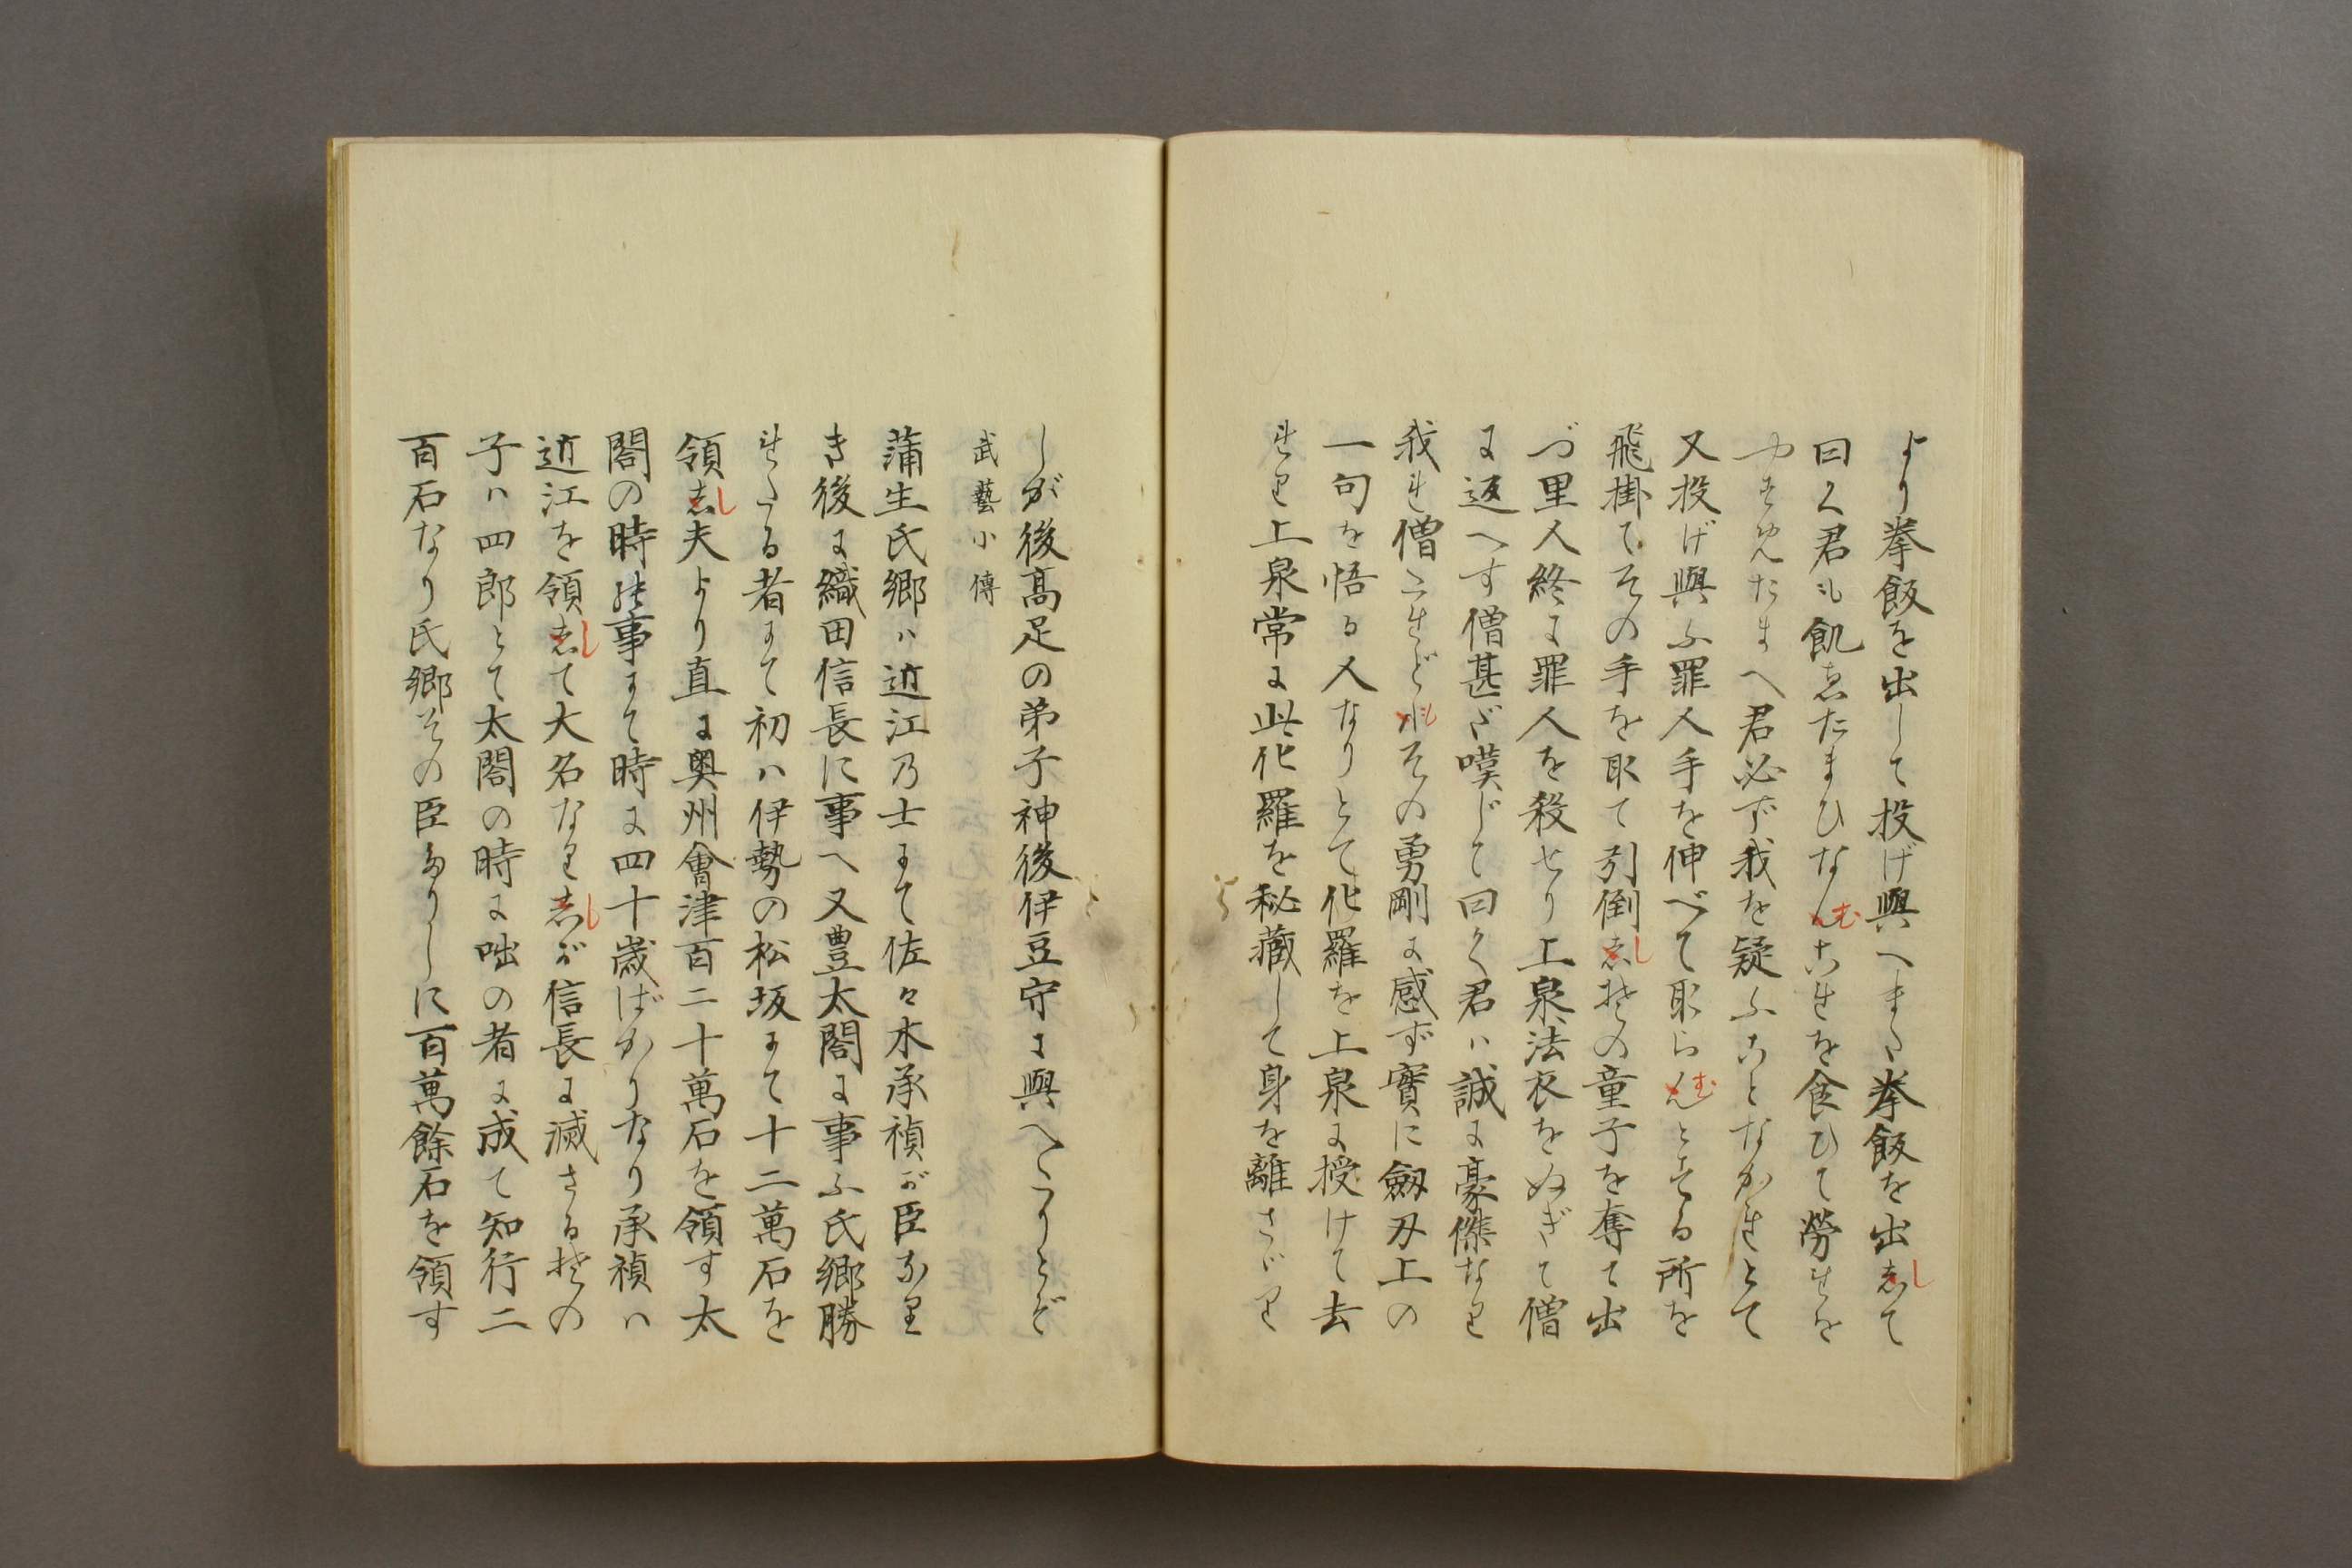 より拳飯を出して投げ與へまた拳飯を出して
曰く君も飢ゑたまひなむこれを食ひて勞れを
やすめたまへ君必ず我を疑ふことなかれとて
又投げ與ふ罪人手を伸べて取らむとする所を
飛掛てその手を取て引倒しその童子を奪て出
づ里人終に罪人を殺せり上泉法衣をぬぎて僧
に返へす僧甚だ嘆じて曰く君ハ誠に豪傑なり
我れ僧たれどもその勇剛に感ず實に劔刄上の
一句を悟る人なりとて化羅を上泉に授けて去
れり上泉常に此化羅を秘藏して身を離さゞり
しが後髙足の弟子神後伊豆守に與へたりとぞ
武藝小傳
蒲生氏郷ハ近江乃士にて佐々木承禎が臣なり
き後に織田信長に事へ又豊太閤に事ふ氏郷勝
れたる者にて初ハ伊勢の松坂にて十二萬石を
領し夫より直に奥州會津百二十萬石を領す太
閤の時の事にて時に四十歳ばかりなり承禎ハ
近江を領して大名なりしが信長に滅さるその
子ハ四郎とて太閤の時に咄の者に成て知行二
百石なり氏郷その臣なりしに百萬餘石を領す